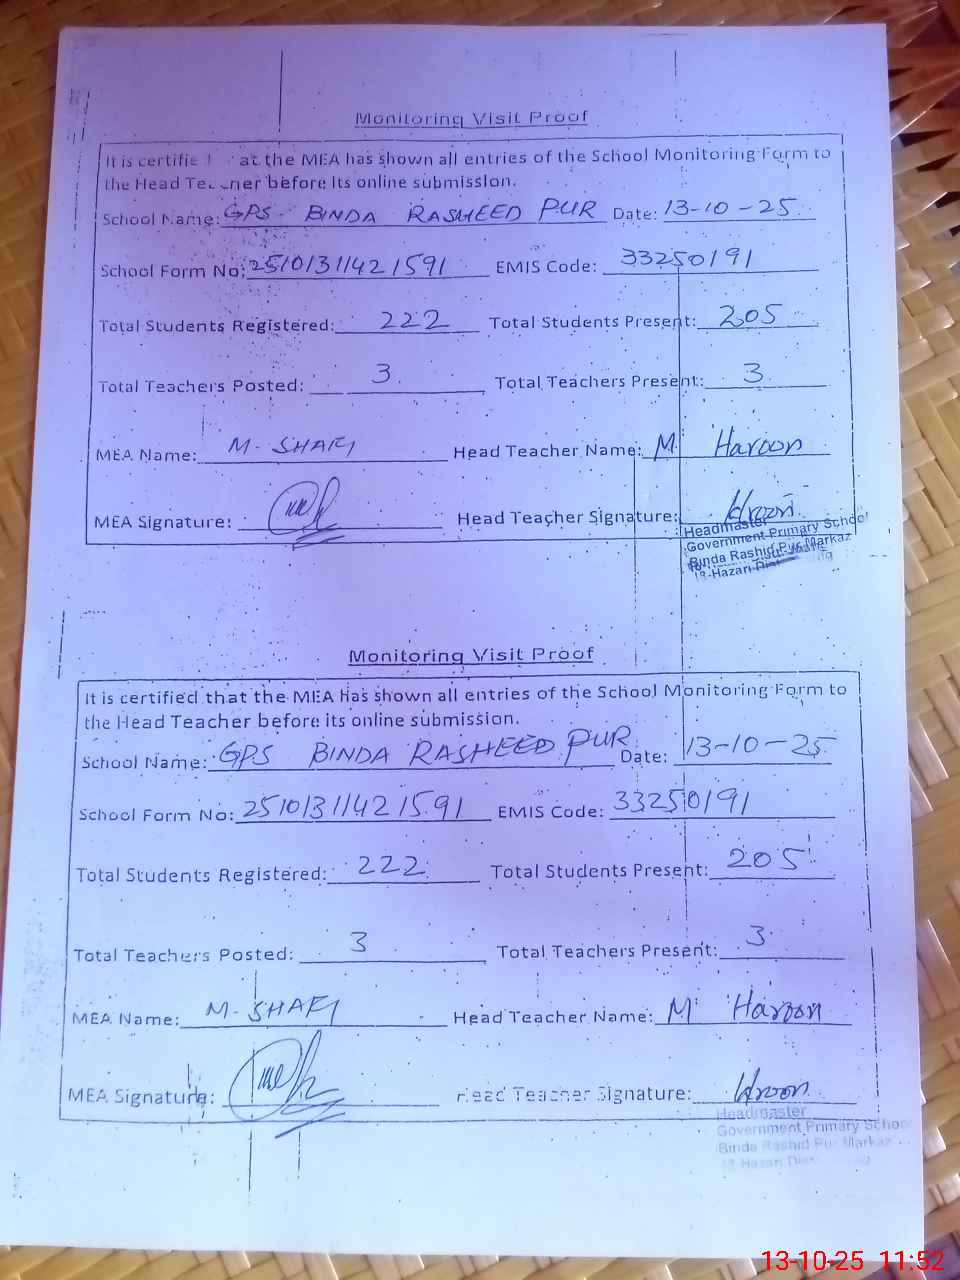 Monitoring Visit Proof
It is certifie at the MEA has shown all entries of the School Monitoring Form to
the Head Teacher before its online submission.
School Name: GPS BINDA RASHEED PUR Date: 13-10-25
School Form No: 2510131142 1591 EMIS Code: 33250191
Total Students Registered: 222 Total Students Present: 205
Total Teachers Posted: 3 Total Teachers Present: 3
MEA Name: M. SHAFI Head Teacher Name: M Haroon
MEA Signature: Head Teacher Signature: Haroon
Headmaster
Government Primary School
Binda Rashid Pur Markaz
18-Hazari Dist
Monitoring Visit Proof
It is certified that the MEA has shown all entries of the School Monitoring Form to
the Head Teacher before its online submission.
School Name: GPS BINDA RASHEED PUR Date: 13-10-25
School Form No: 2510131142 1591 EMIS Code: 33250191
Total Students Registered: 222 Total Students Present: 205
Total Teachers Posted: 3 Total Teachers Present: 3
MEA Name: M. SHAFI Head Teacher Name: M Haroon
MEA Signature: Head Teacher Signature: Haroon
Headmaster
Government Primary School
Binda Rashid Pur Markaz
Hazari Dist
13-10-25 11:52